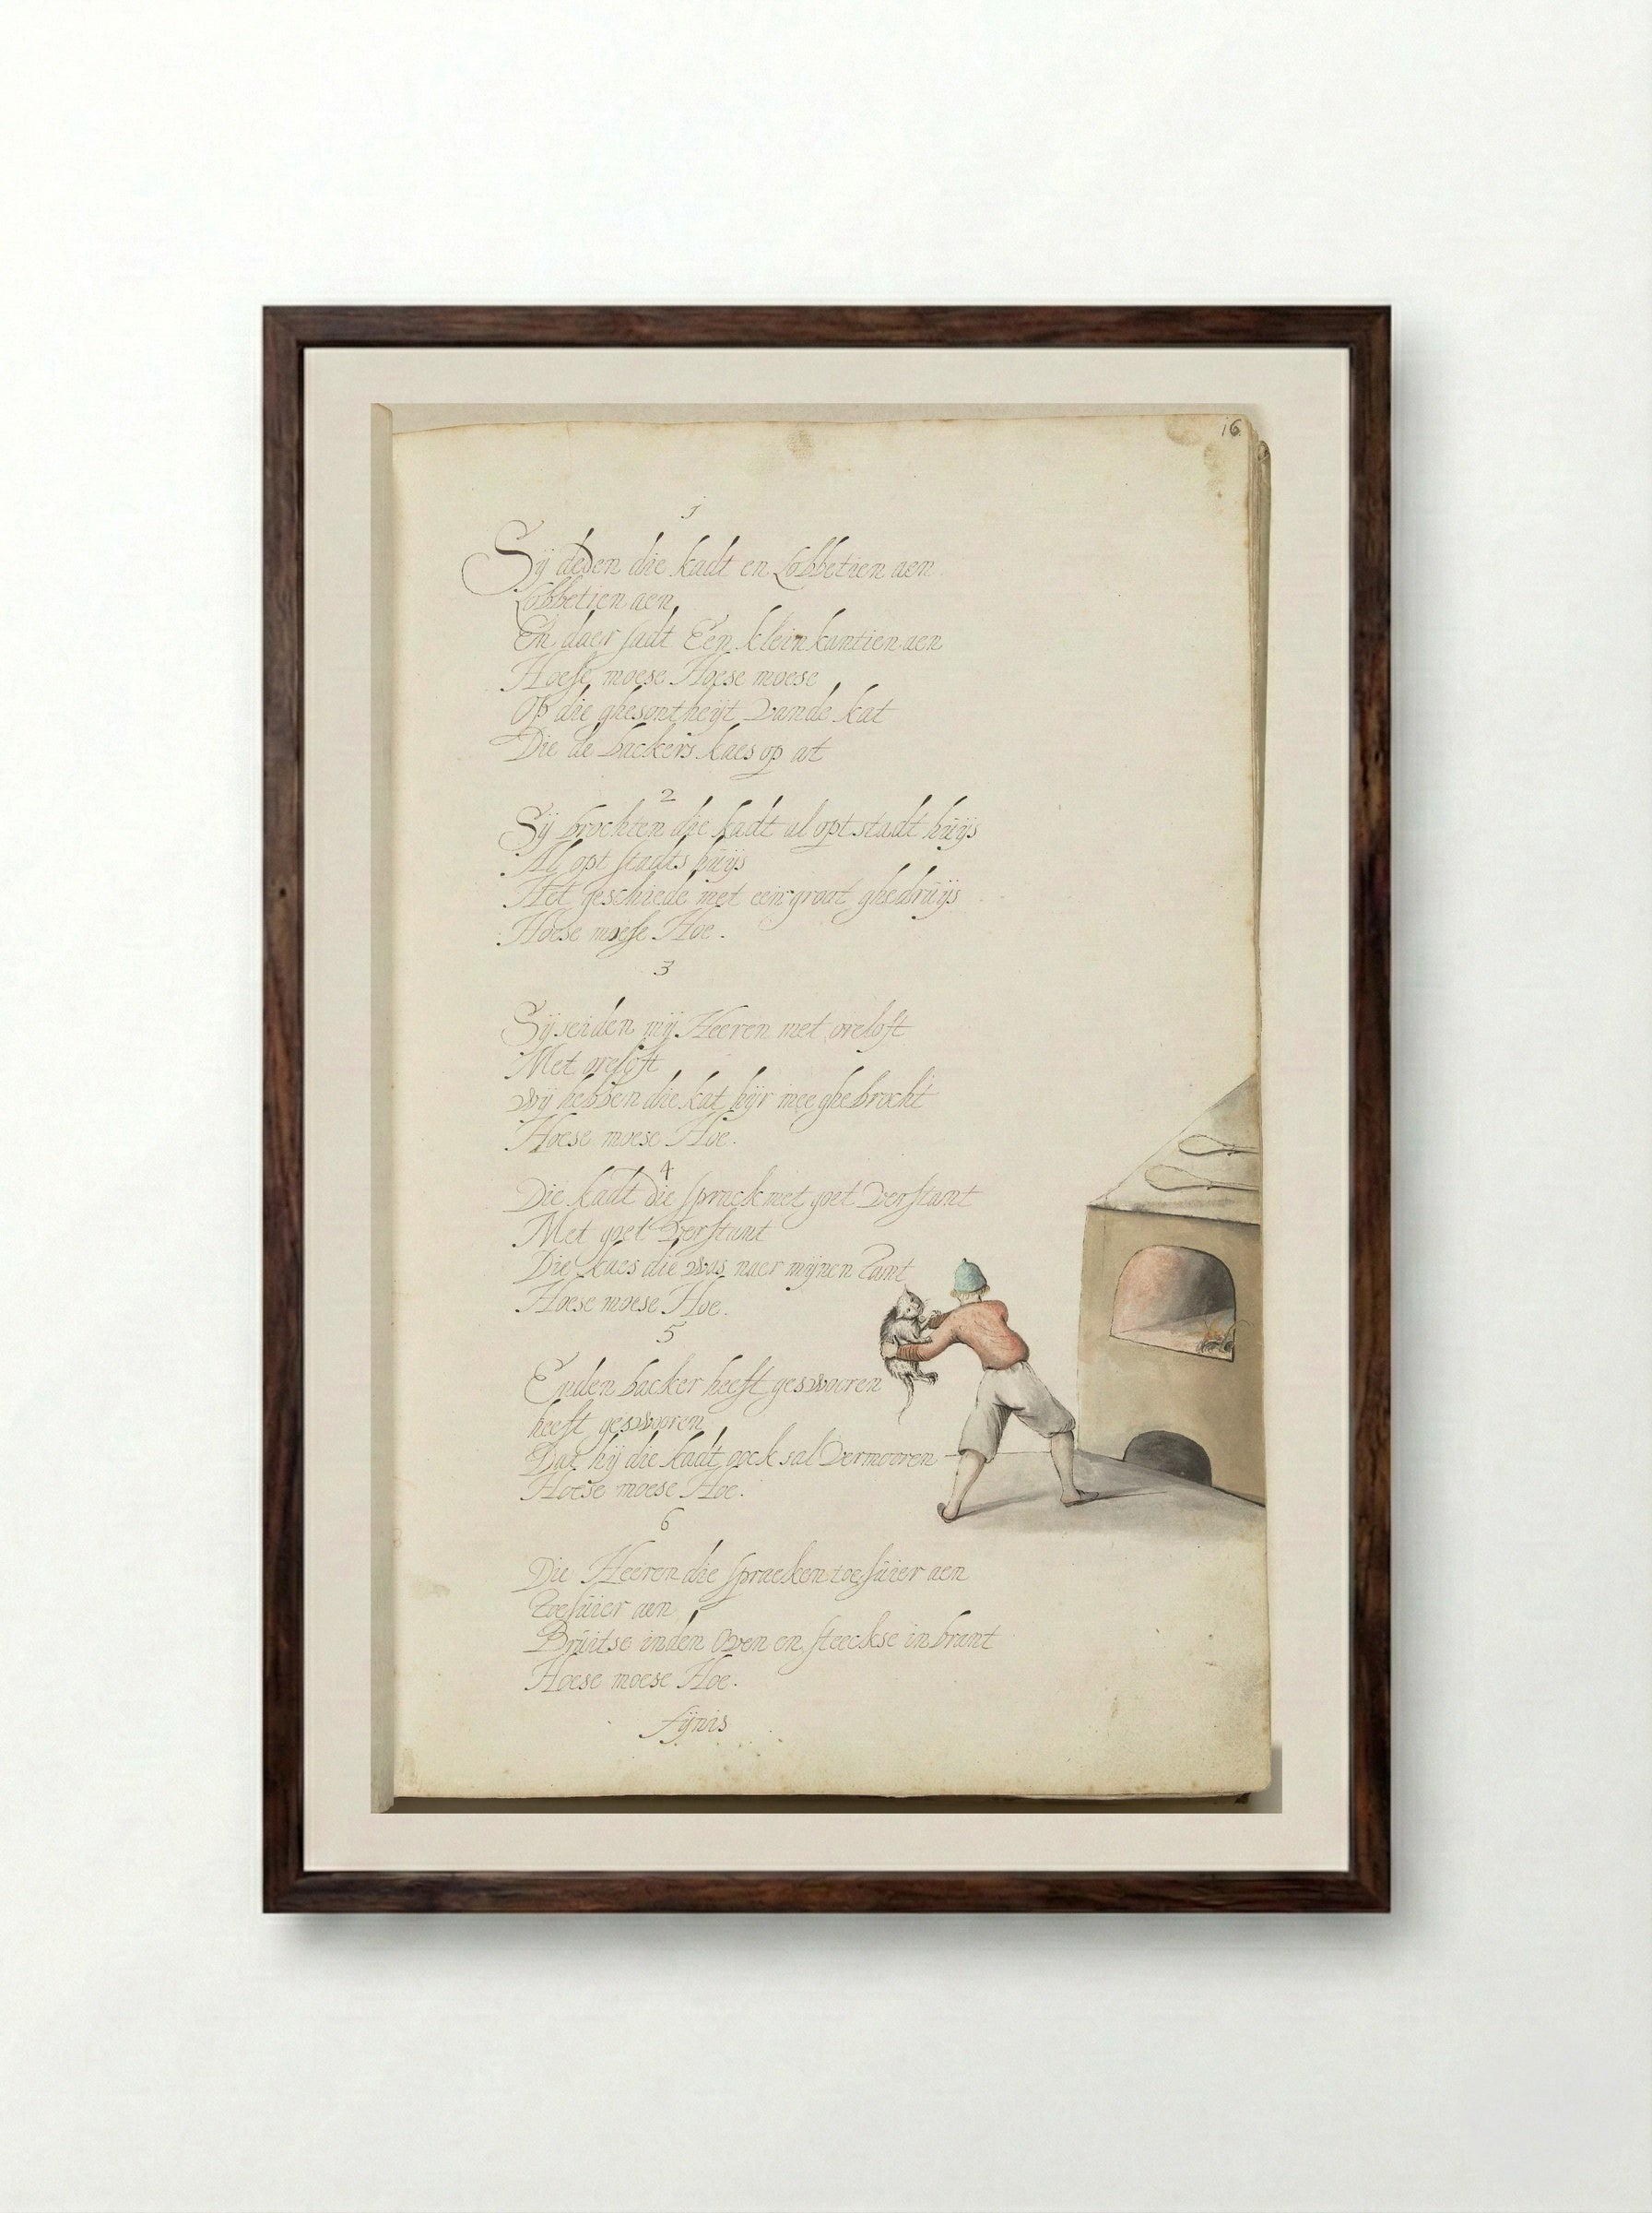 16
1
Sÿ deden die kadt en Lobbetien aen
Lobbetien aen
En daer sadt Een klein kantien aen
Hoese moese Hoese moese
Op die ghesontheÿt vande kat
Die de backers kaes op at
2
Sÿ brochten die kadt al opt stadt hüÿs
Al opt stadts hüÿs
Het geschiede met een groot ghedrüÿs
Hoese moese Hoe.
3
Sÿ seiden mÿ Heeren met oreloft
Met oreloft
wÿ hebben die kat hÿr mee ghebrocht
Hoese moese Hoe.
4
Die kadt die sprack met goet verstant
Met goet verstant
Die kaes die was naer mÿnen tant
Hoese moese Hoe.
5
Enden backer heeft geswooren
heeft geswooren
Dat hÿ die kadt oock sal vermooren
Hoese moese Hoe.
6
Die Heeren die spraeken toe süier aen
toe süier aen
Brüitse inden Oven en steeckse in brant
Hoese moese Hoe.
fÿnis